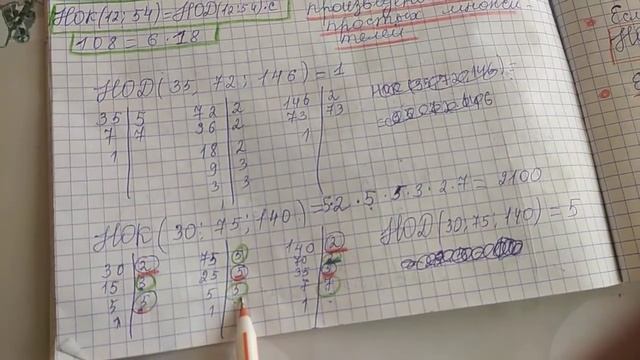 НОК(12; 54) = НОД(12;54)·с
108 = 6·18
произведе
простых множи-
телей
Ес
НОД(35; 72; 146) = 1
35 | 5
7 | 7
1
72 | 2
36 | 2
18 | 2
9 | 3
3 | 3
146 | 2
73 | 73
1
НОК(30; 75; 140) = 52·5·5·3·2·7 = 2100
НОД(30; 75; 140) = 5
30 | 2
15 | 3
5 | 5
1
75 | 5
25 | 5
5 | 5
1
140 | 2
70
35 | 5
7 | 7
1